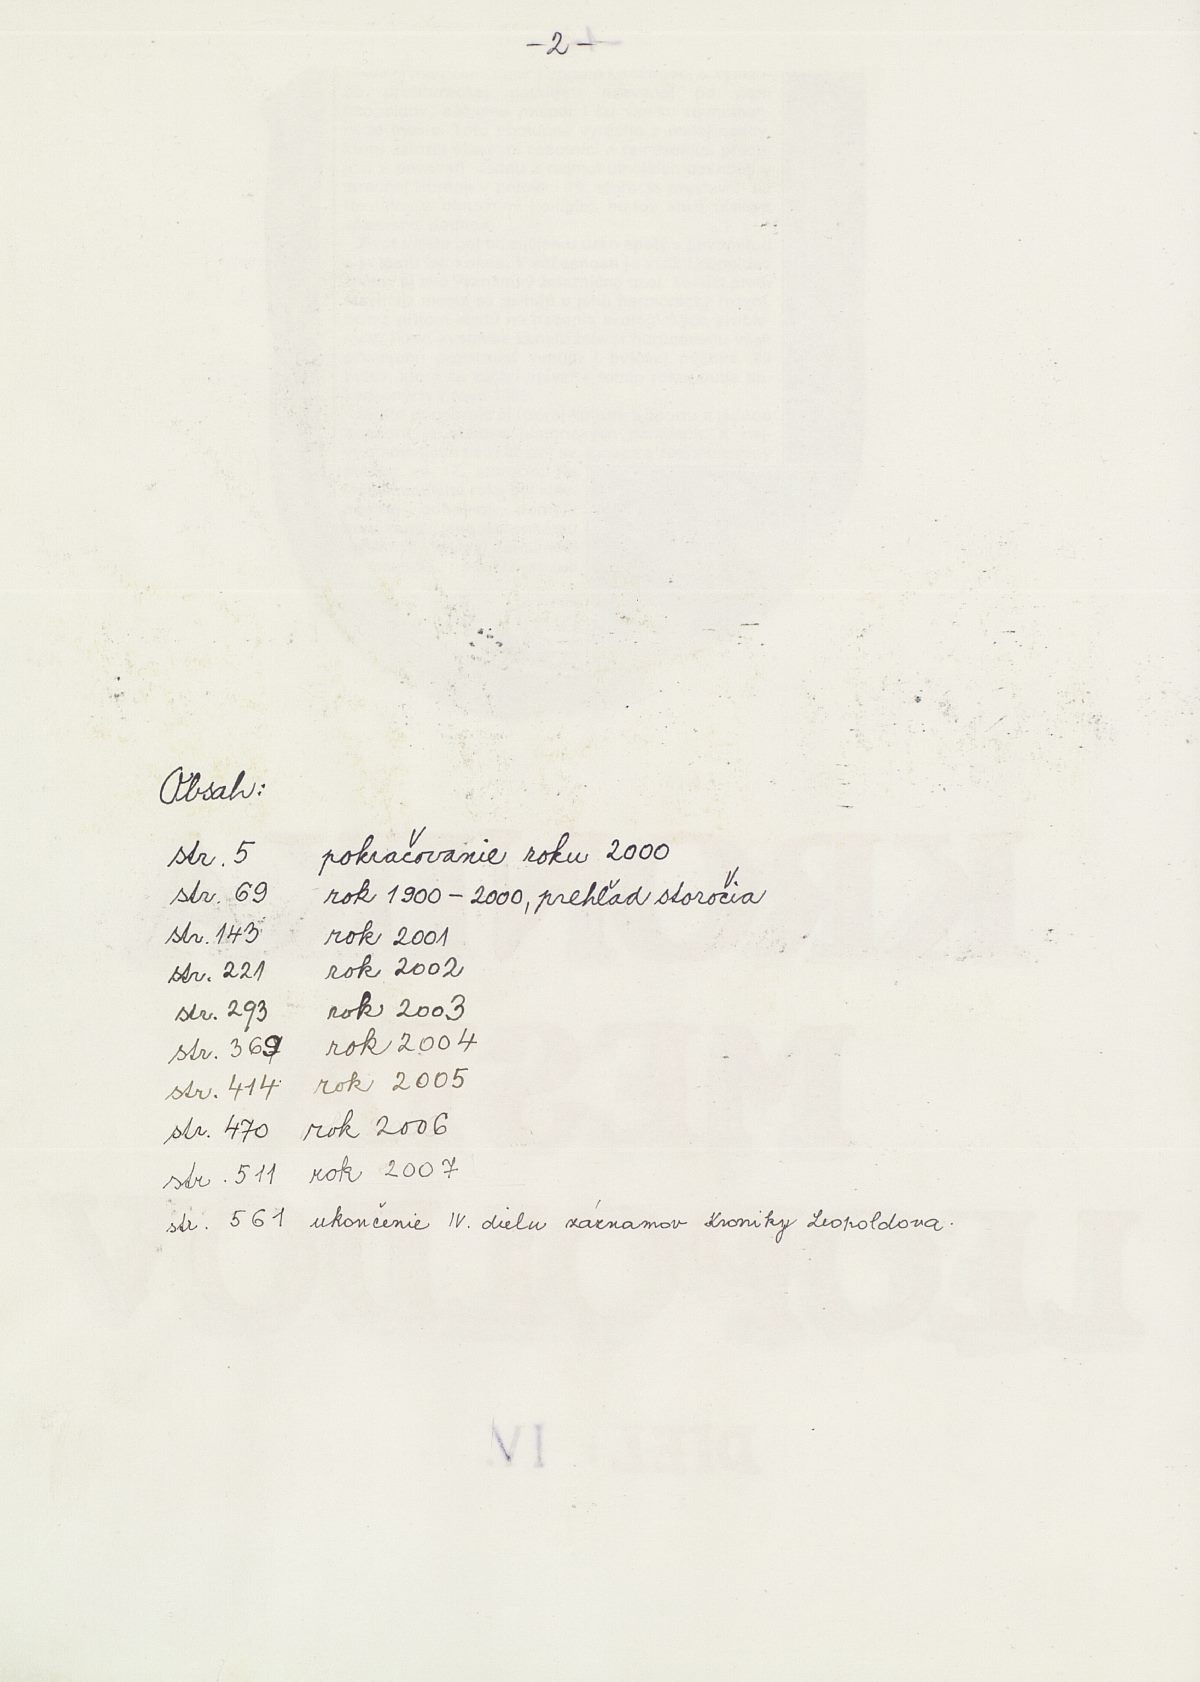 -2-
Obsah:
str. 5 pokračovanie roku 2000
str. 69 rok 1900 - 2000, prehľad storočia
str. 143 rok 2001
str. 221 rok 2002
str. 293 rok 2003
str. 369 rok 2004
str. 414 rok 2005
str. 470 rok 2006
str. 511 rok 2007
str. 561 ukončenie IV. dielu záznamov Kroniky Leopoldova.